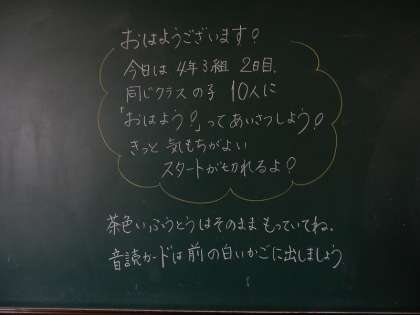 おはようございます!
今日は 4年3組 2日目、
同じクラスの子 10人に
「おはよう!」ってあいさつしよう!
きっと 気もちがよい
スタートが切れるよ!
茶色いふうとうはそのままもっていてね、
音読カードは前の白いかごに出しましょう